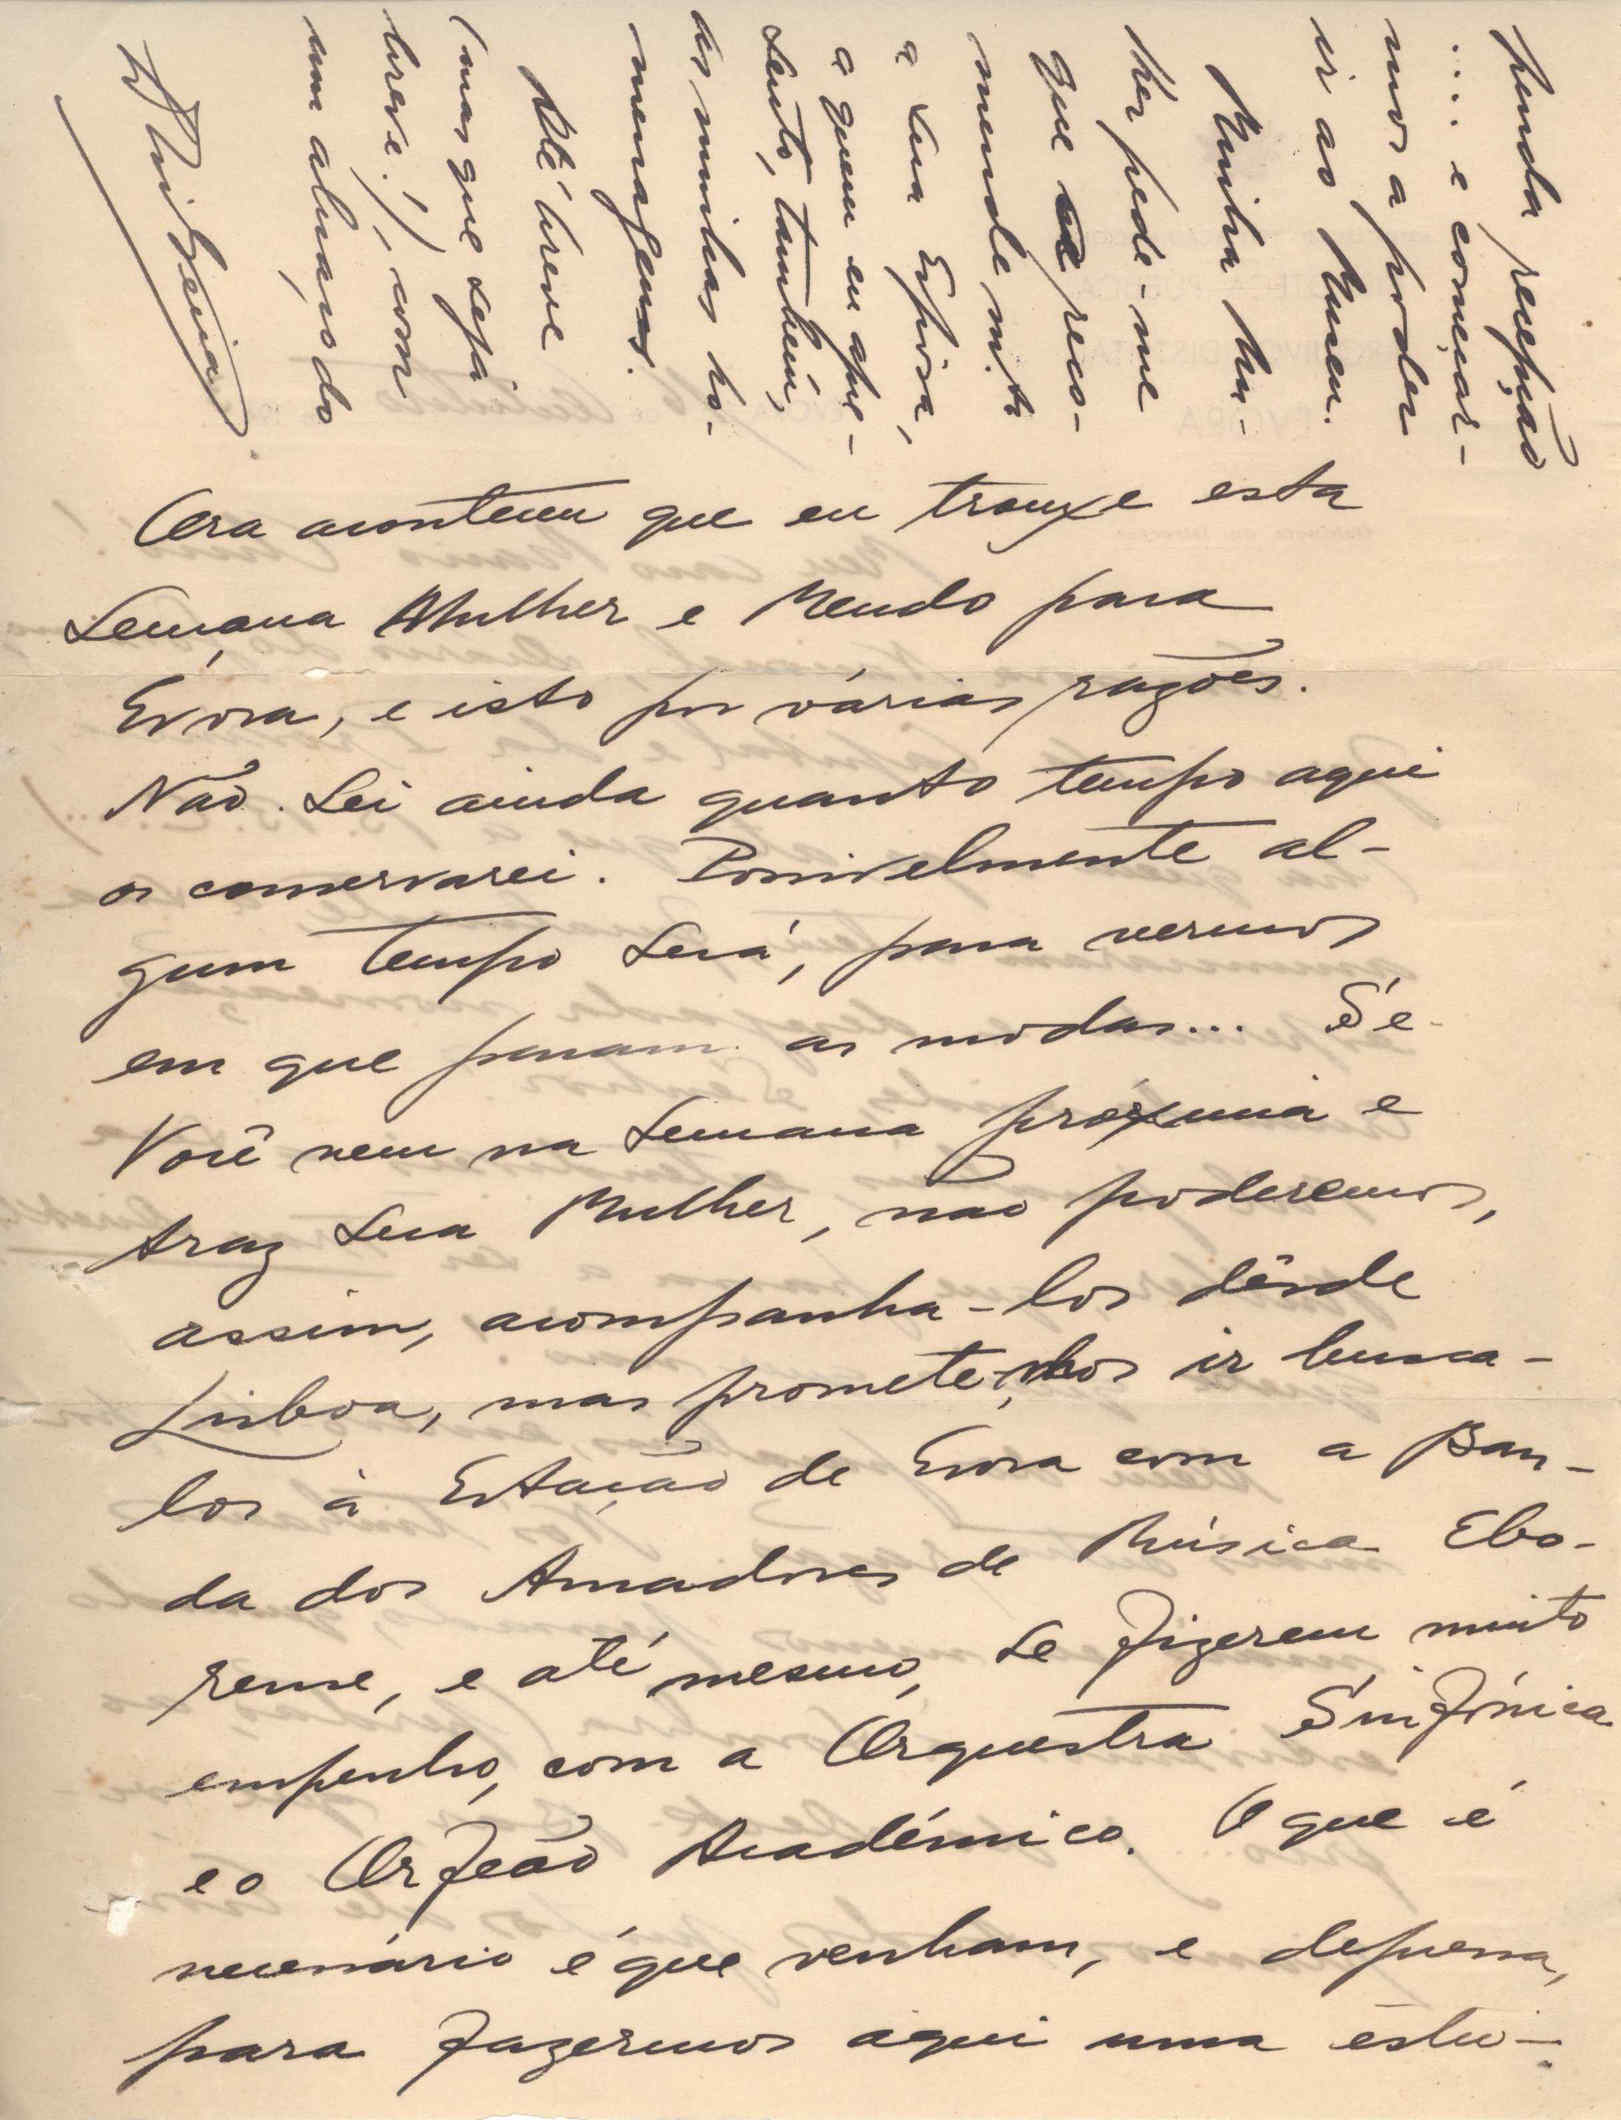 Ora aconteceu que eu trouxe esta
Semana Mulher e Mendo para
Evora, e isto por várias razões.
Não sei ainda quanto tempo aqui
os conservarei. Possivelmente al-
gum tempo será, para vermos
em que param as modas... Se
Você vem na semana próxima e
traz sua Mulher, não poderemos,
assim, acompanha-los dêsde
Lisboa, mas promete-mos ir busca-
los á Estação de Evora com a Ban-
da dos Amadores de Música Ebo-
rense, e até mesmo, se fizerem muito
empenho, com a Orquestra Sinfónica
e o Orfeão Académico. O que é
necessário é que venham, e depressa,
para fazermos aqui uma estu-
penda recepção
.... e começar-
mos a poder
ir ao Museu.
Minha Mu-
lher pede-me
que reco-
mende mto
a sua Esposa,
a quem eu apre-
sento, também,
as minhas ho-
menagens.
Até breve
(mas que seja
breve!), com
um abraço do